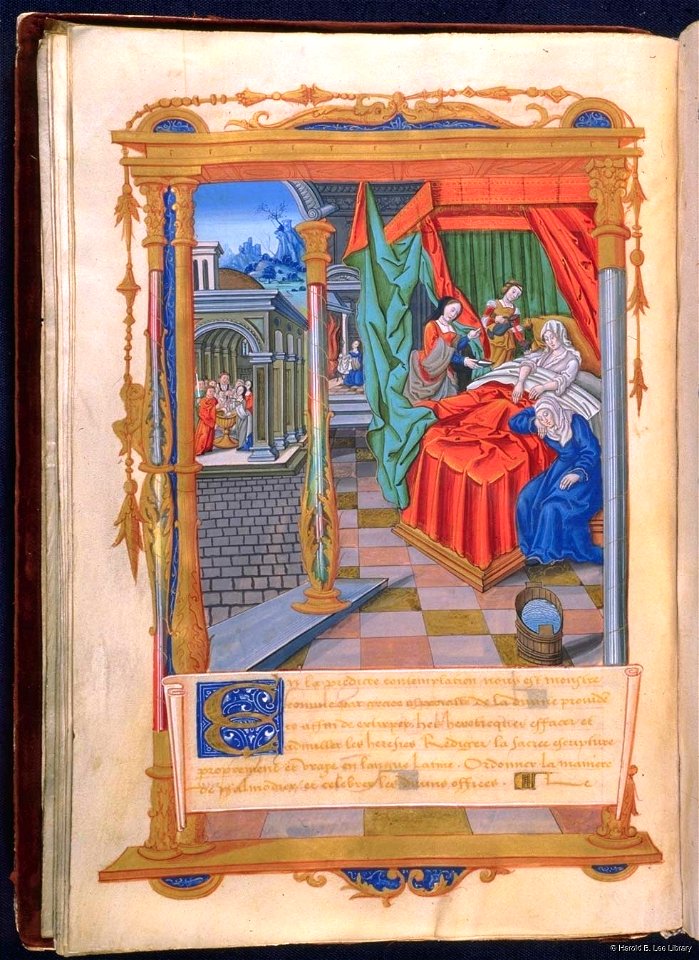 En la predicte contemplation nous est monstre
comme par grace especialle de la divine provide
ce affin de extirper heberoticques effacer et
adnuller les heresies Rediger la sacree escripture
proprement et vraye en langue latine. Ordonner la maniere
de psalmodier et celebrer les divins offices.
© Harold B. Lee Library